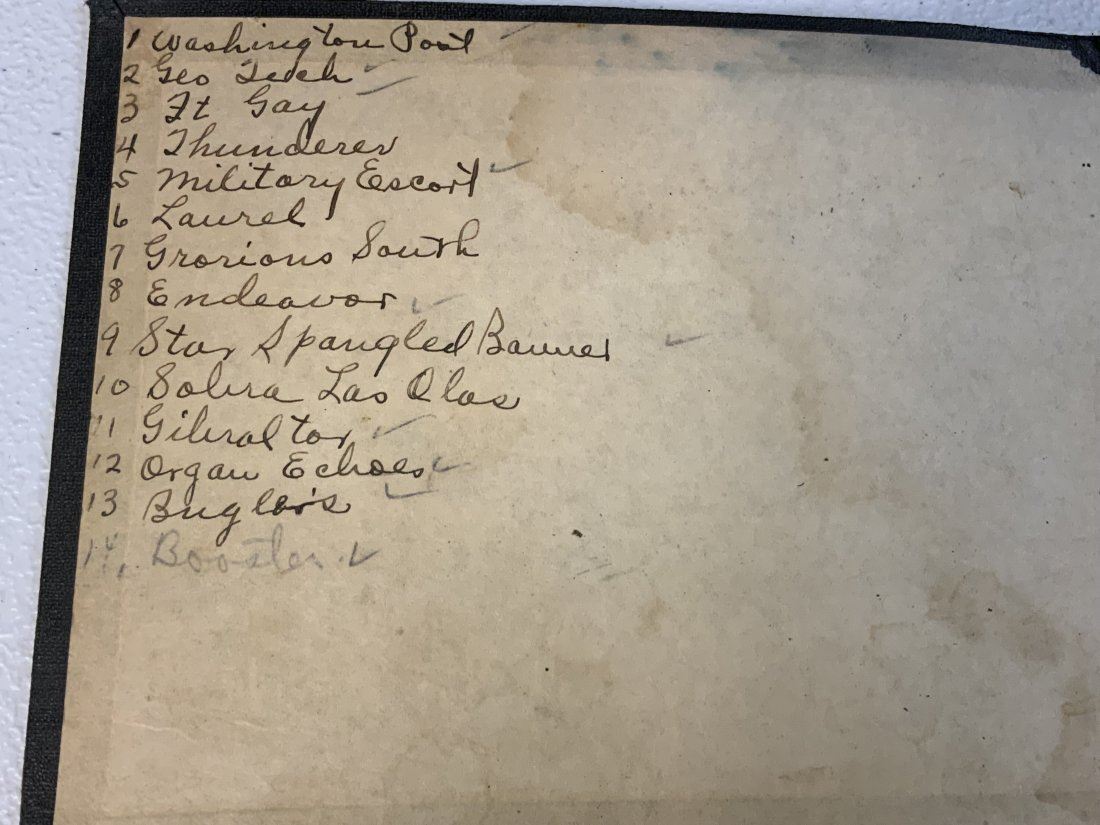 1 Washington Post
2 Geo Tech
3 Ft Gay
4 Thunderer
5 Military Escort
6 Laurel
7 Grorious South
8 Endeavor
9 Star Spangled Banner
10 Sobra Las Olas
11 Gibraltar
12 Organ Echoes
13 Bugler's
14. Booster